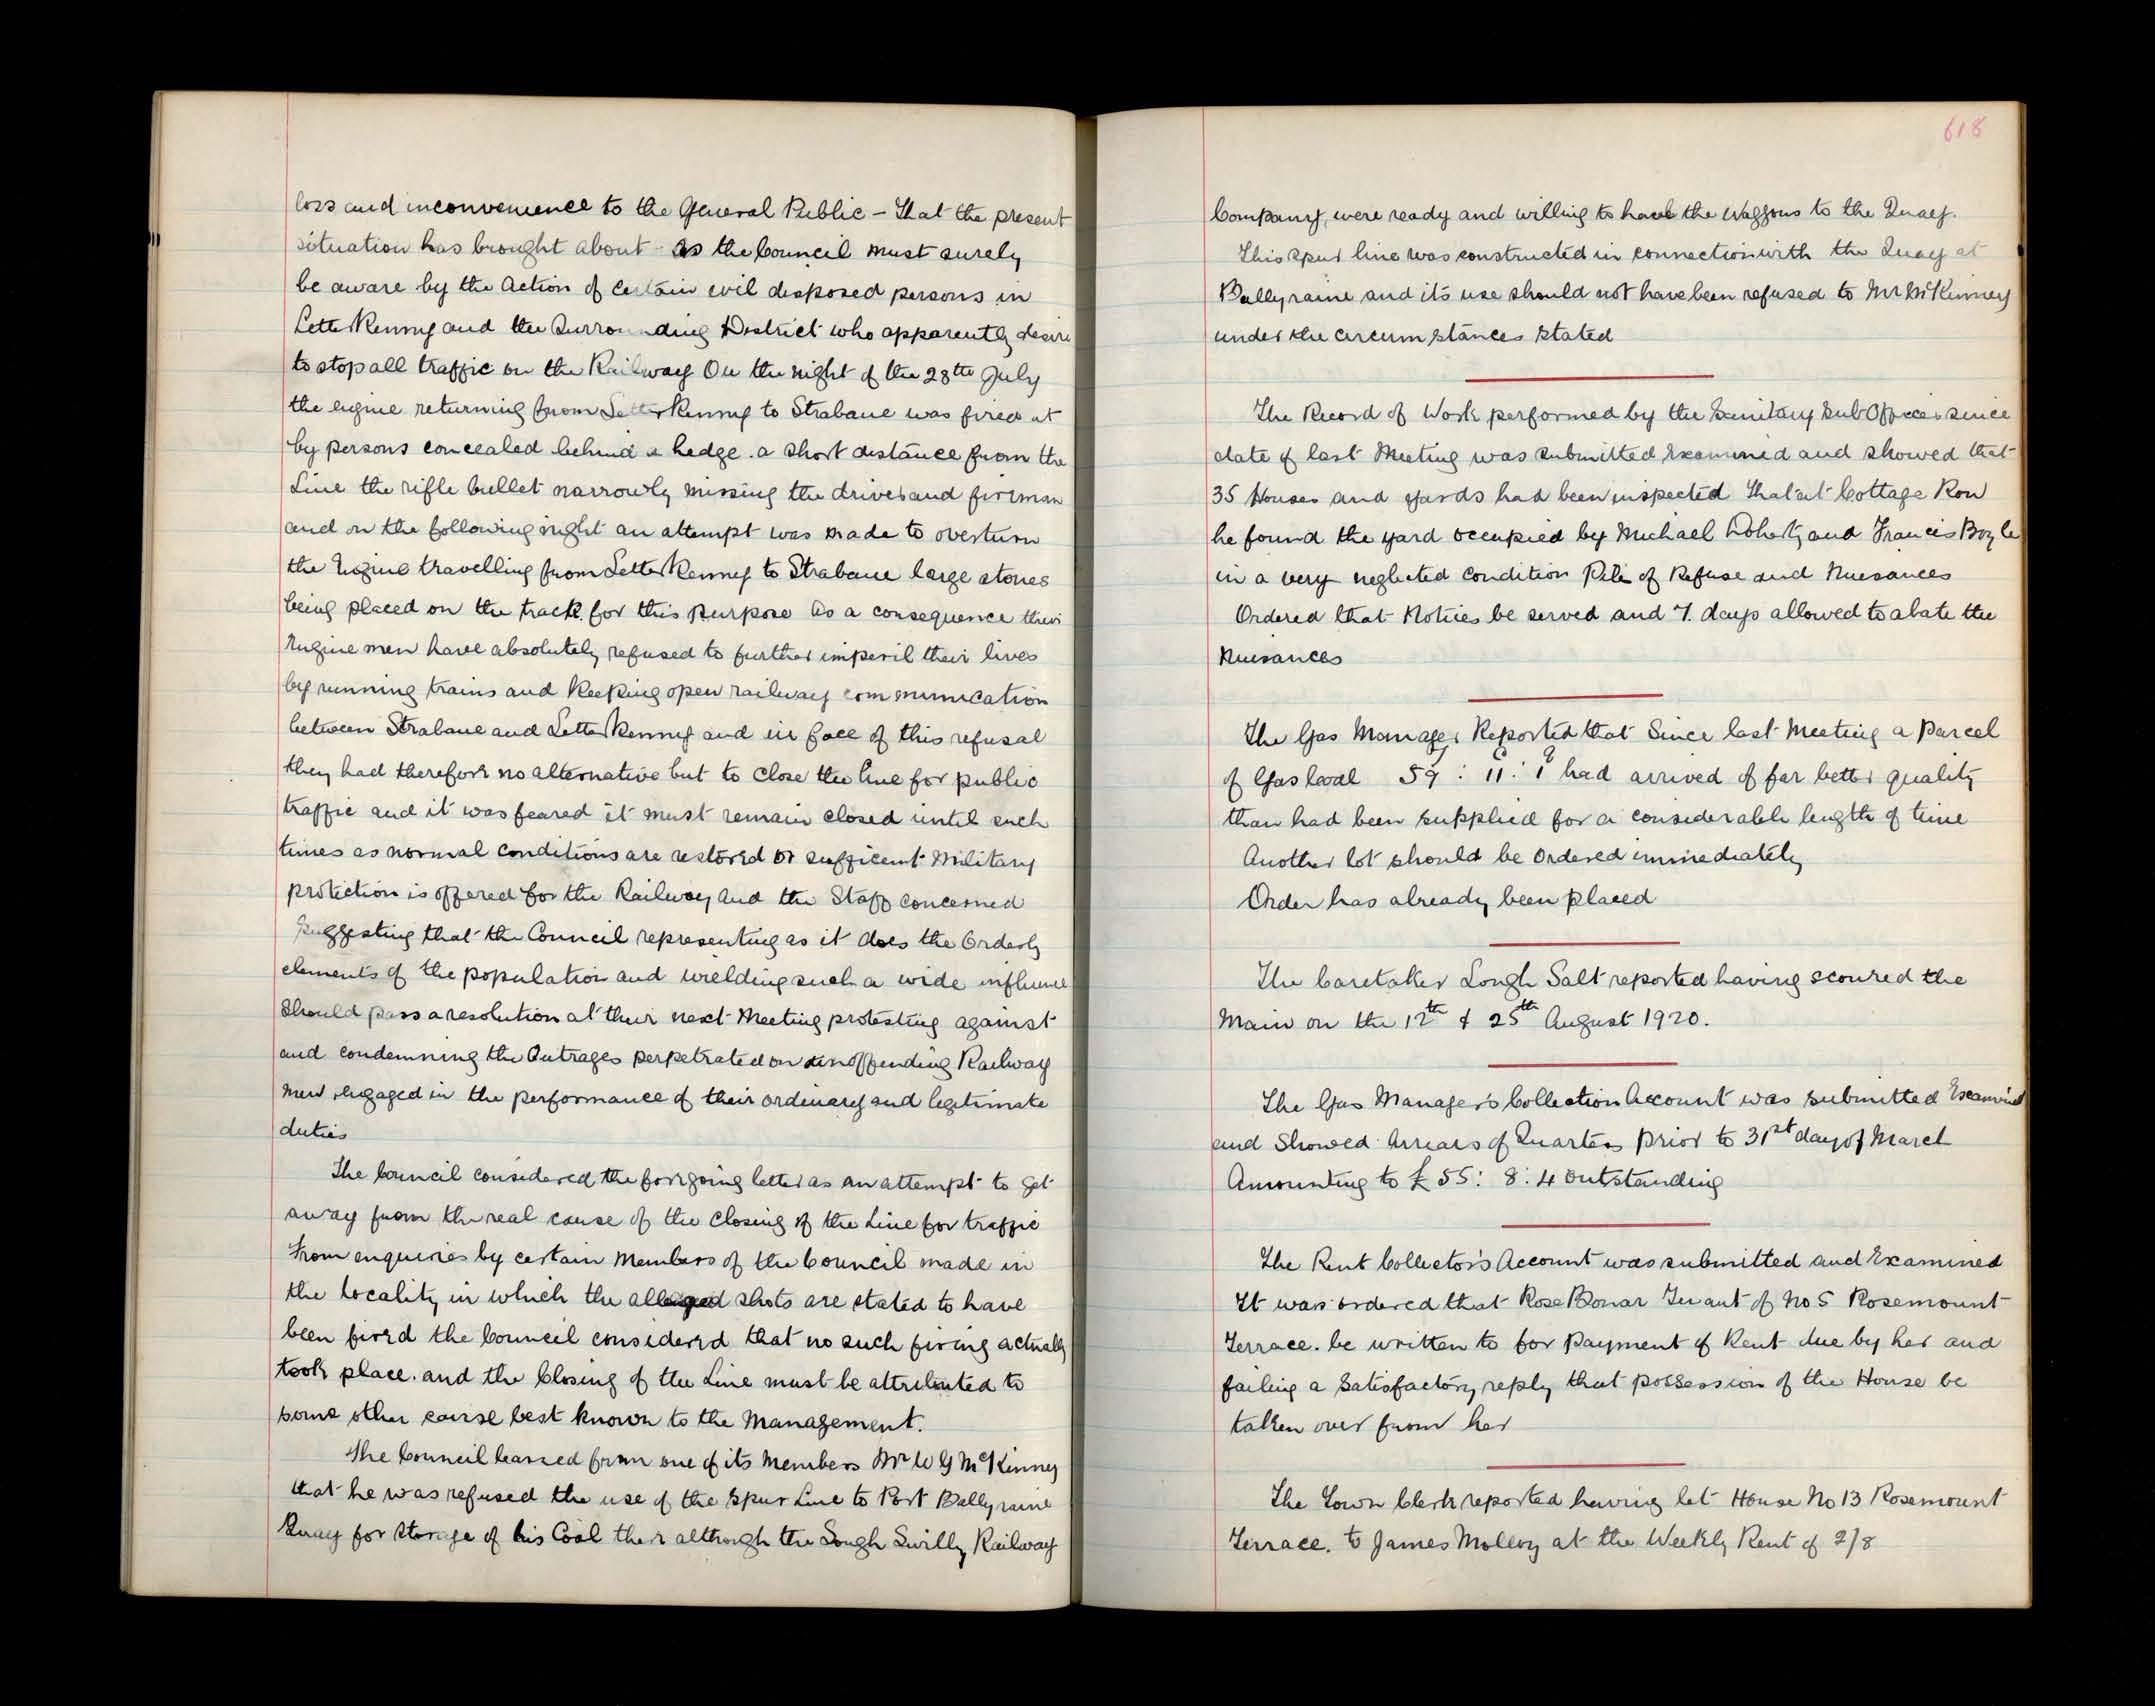 loss and inconvenience to the General Public - That the present
situation has brought about - as the Council must surely
be aware by the Action of certain evil disposed persons in
Letterkenny and the Surrounding District who apparently desire
to stop all traffic on the Railway On the night of the 28th July
the engine returning from Letterkenny to Strabane was fired at
by persons concealed behind a hedge . a short distance from the
Line the rifle bullet narrowly missing the driver and fireman
and on the following night an attempt was made to overturn
the Engine travelling from Letterkenny to Strabane large stones
being placed on the track for this purpose As a consequence their
Engine men have absolutely refused to further imperil their lives
by running trains and keeping open railway communication
between Strabane and Letterkenny and in face of this refusal
they had therefore no alternative but to close the line for public
traffic and it was feared it must remain closed until such
times as normal conditions are restored or sufficent Military
protection is offered for the Railway and the Staff concerned
Suggesting that the Council representing as it does the Orderly
elements of the population and wielding such a wide influence
should pass a resolution at their next Meeting protesting against
and condemning the Outrages perpetrated on unoffending Railway
men engaged in the performance of their ordinary and legitimate
duties
The Council considered the foregoing letter as an attempt to get
away from the real cause of the closing of the Line for traffic
From enquiries by certain Members of the Council made in
the locality in which the alleged shots are stated to have
been fired the Council considered that no such firing actually
took place. and the Closing of the Line must be attributed to
some other cause best known to the Management.
The Council learned from one of its Members Mr W G McKinney
that he was refused the use of the Spur Line to Port Ballyraine
Quay for storage of his Coal there although the Lough Swilly Railway
618
Company, were ready and willing to haul the Waggons to the Quay.
This spur line was constructed in connection with the Quay at
Ballyraine and its use should not have been refused to Mr McKinney
under the circumstances stated
The Record of Work performed by the Sanitary Sub Officer since
date of last Meeting was submitted Examined and showed that
35 Houses and yards had been inspected That at Cottage Row
he found the yard occupied by Michael Doherty and Francis Boyle
in a very neglected condition Pile of Refuse and Nuisances
Ordered that Notices be served and 7. days allowed to abate the
Nuisances
The Gas Manager Reported that Since last Meeting a Parcel
of Gas Coal 59 : 11 : 1 had arrived of far better quality
than had been supplied for a considerable length of time
Another lot should be Ordered immediately
Order has already been placed
The Caretaker Lough Salt reported having scoured the
Main on the 12th & 25th August 1920.
The Gas Manager's Collection Account was submitted Examined
and Showed Arrears of Quarters prior to 31st day of March
Amounting to £55: 8: 4 outstanding
The Rent Collector's Account was submitted and Examined
It was ordered that Rose Bonar Tenant of No 5 Rosemount
Terrace. be written to for payment of Rent due by her and
failing a Satisfactory reply that possession of the House be
taken over from her
The Town Clerk reported having let House No 13 Rosemount
Terrace. to James Molloy at the Weekly Rent of 2/8